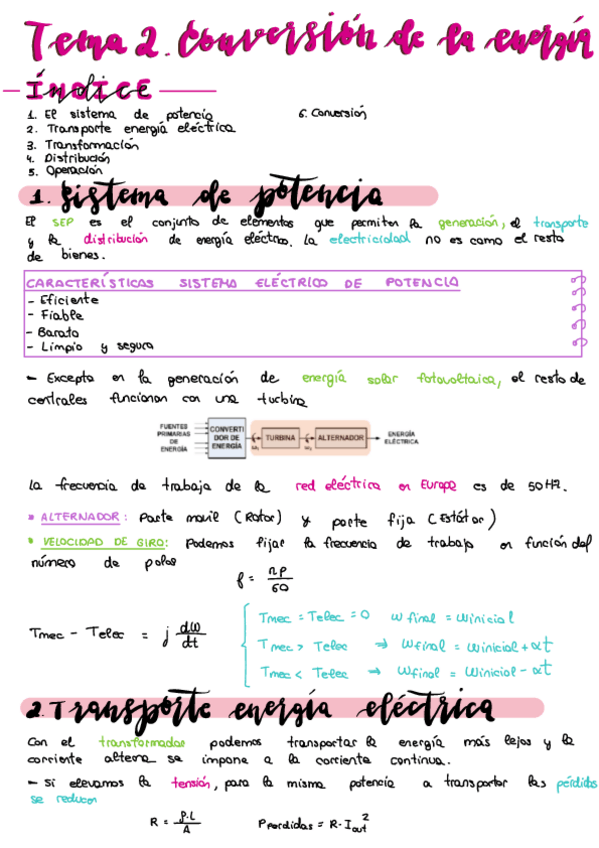 Tema 2. Conversión de la energía
ÍNDICE
1. El sistema de potencia
2. Transporte energía eléctrica
3. Transformación
4. Distribución
5. Operación
6. Conversión
1. Sistema de potencia
El SEP es el conjunto de elementos que permiten la generación, el transporte
y la distribución de energía eléctrica. La electricidad no es como el resto
de bienes.
CARACTERÍSTICAS SISTEMA ELÉCTRICO DE POTENCIA
- Eficiente
- Fiable
- Barato
- Limpio y seguro
- Excepto en la generación de energía solar fotovoltaica, el resto de
centrales funcionan con una turbina
FUENTES PRIMARIAS DE ENERGÍA
CONVERTIDOR DE ENERGÍA
TURBINA
ALTERNADOR
ENERGÍA ELÉCTRICA
La frecuencia de trabajo de la red eléctrica en Europa es de 50Hz.
* ALTERNADOR: Parte movil (Rotor) y parte fija (Estátor)
* VELOCIDAD DE GIRO: Podemos fijar la frecuencia de trabajo en función del
número de polos
f = np/60
Tmec - Telec = j dw/dt
Tmec = Telec = 0 w final = w inicial
Tmec > Telec → w final = w inicial + αt
Tmec < Telec → w final = w inicial - αt
2. Transporte energía eléctrica
Con el transformador podemos transportar la energía más lejos y la
corriente alterna se impone a la corriente continua.
- Si elevamos la tensión, para la misma potencia a transportar las pérdidas
se reducen
R = ρ·L/A P perdidas = R·I out²